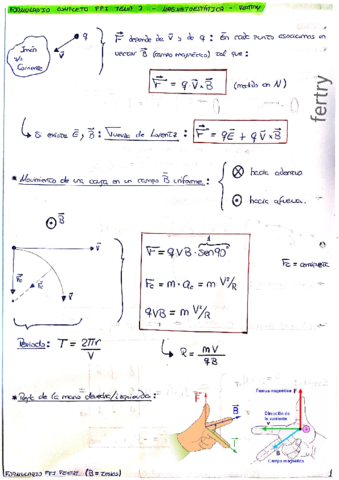 FORMULARIO COMPLETO FFI TEMA 3 - MAGNETOSTÁTICA - FERTRY
Imán
y/o
Corriente
q
v
F depende de v y de q : En cada punto asociamos un
vector B (campo magnético) tal que:
F = q·v×B (medido en N)
fertry
Si existe E, B: Fuerza de Lorentz: F = qE + q v×B
* Movimiento de una carga en un campo B uniforme:
⊗ hacia adentro
⊙ hacia afuera
⊙ B
v
Fc
Fc
v
1
F = q V B · sen 90°
Fc = m · ac = m V²/R
q V B = m V²/R
Fc = centrípeta
Periodo: T = 2πr/V
R = mV/qB
* Regla de la mano derecha/izquierda:
F
B
I
Fuerza magnética
F
Dirección de
la corriente
I
B
Campo magnético
FORMULARIO FFI FERTRY (B = Teslas)
1